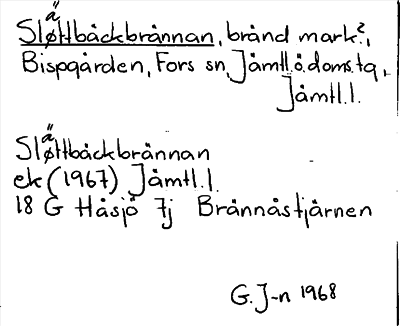 Slättbäckbrännan, bränd mark?,
Bispgården, Fors sn, Jämtl.ö.doms.tg,
Jämtl.l.
Slättbäckbrännan
ek (1967) Jämtl.l.
18 G Håsjö 7j Brännåstjärnen
G.J-n 1968